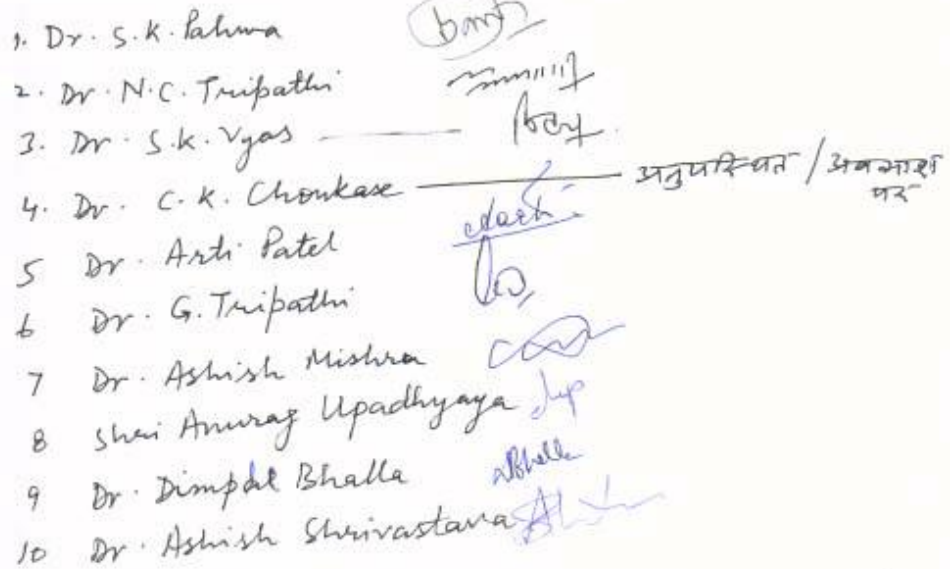 1. Dr. S.K. Pahwa
2. Dr. N.C. Tripathi
3. Dr. S.K. Vyas
4. Dr. C.K. Choukase अनुपस्थित / अवकाश पर
5 Dr. Arti Patel
6 Dr. G. Tripathi
7 Dr. Ashish Mishra
8 Shri Anurag Upadhyaya
9 Dr. Dimpal Bhalla Bhalla
10 Dr. Ashish Shrivastava